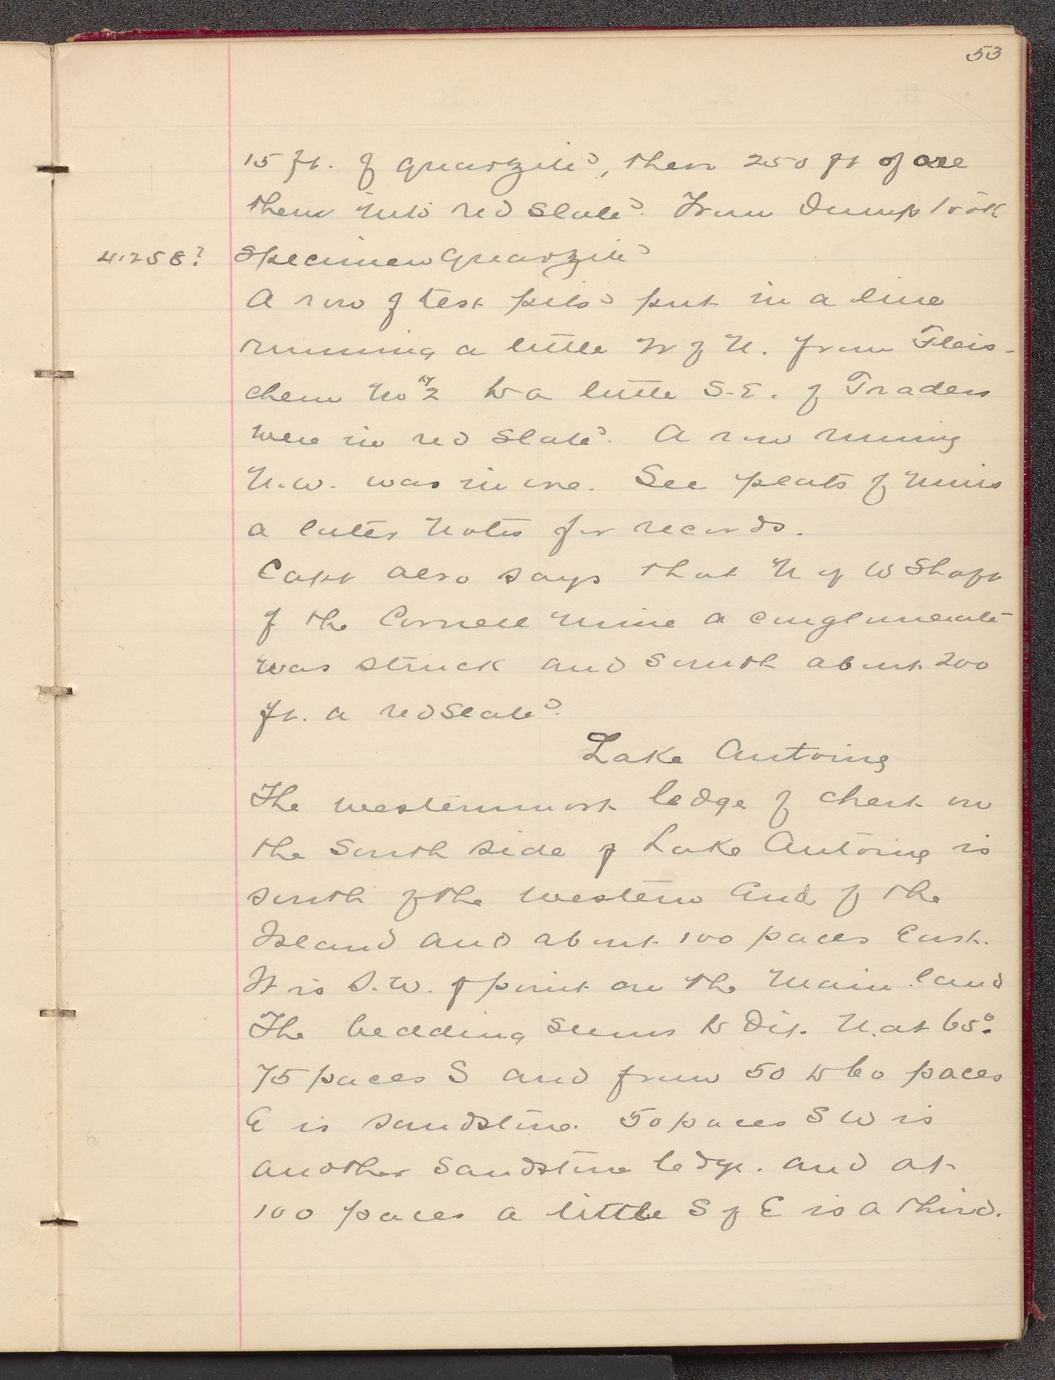 53
15 ft. of quartzite, then 250 ft of ore
then into red slate. From dump took
41258? Specimen quartzite
A row of test pits put in a line
running a little W of N. from Fleis-
chem No 2 to a little S-E. of Traders
were in red slate. A row running
N.W. was in ore. See plats of mins
a later notes for records.
Capt also says that N of W Shaft
of the Cornell mine a conglomerate
was struck and south about 200
ft. a red slate.
Lake Antoine
The westernmost ledge of chert on
the south side of Lake Antoine is
south of the western end of the
Island and about 100 paces East.
It is S.W. of point on the main land
The bedding seems to dip. N. at 65°.
75 paces S and from 50 to 60 paces
E is sandstone. 50 paces S W is
another sandstone ledge. and at
100 paces a little S of E is a third.